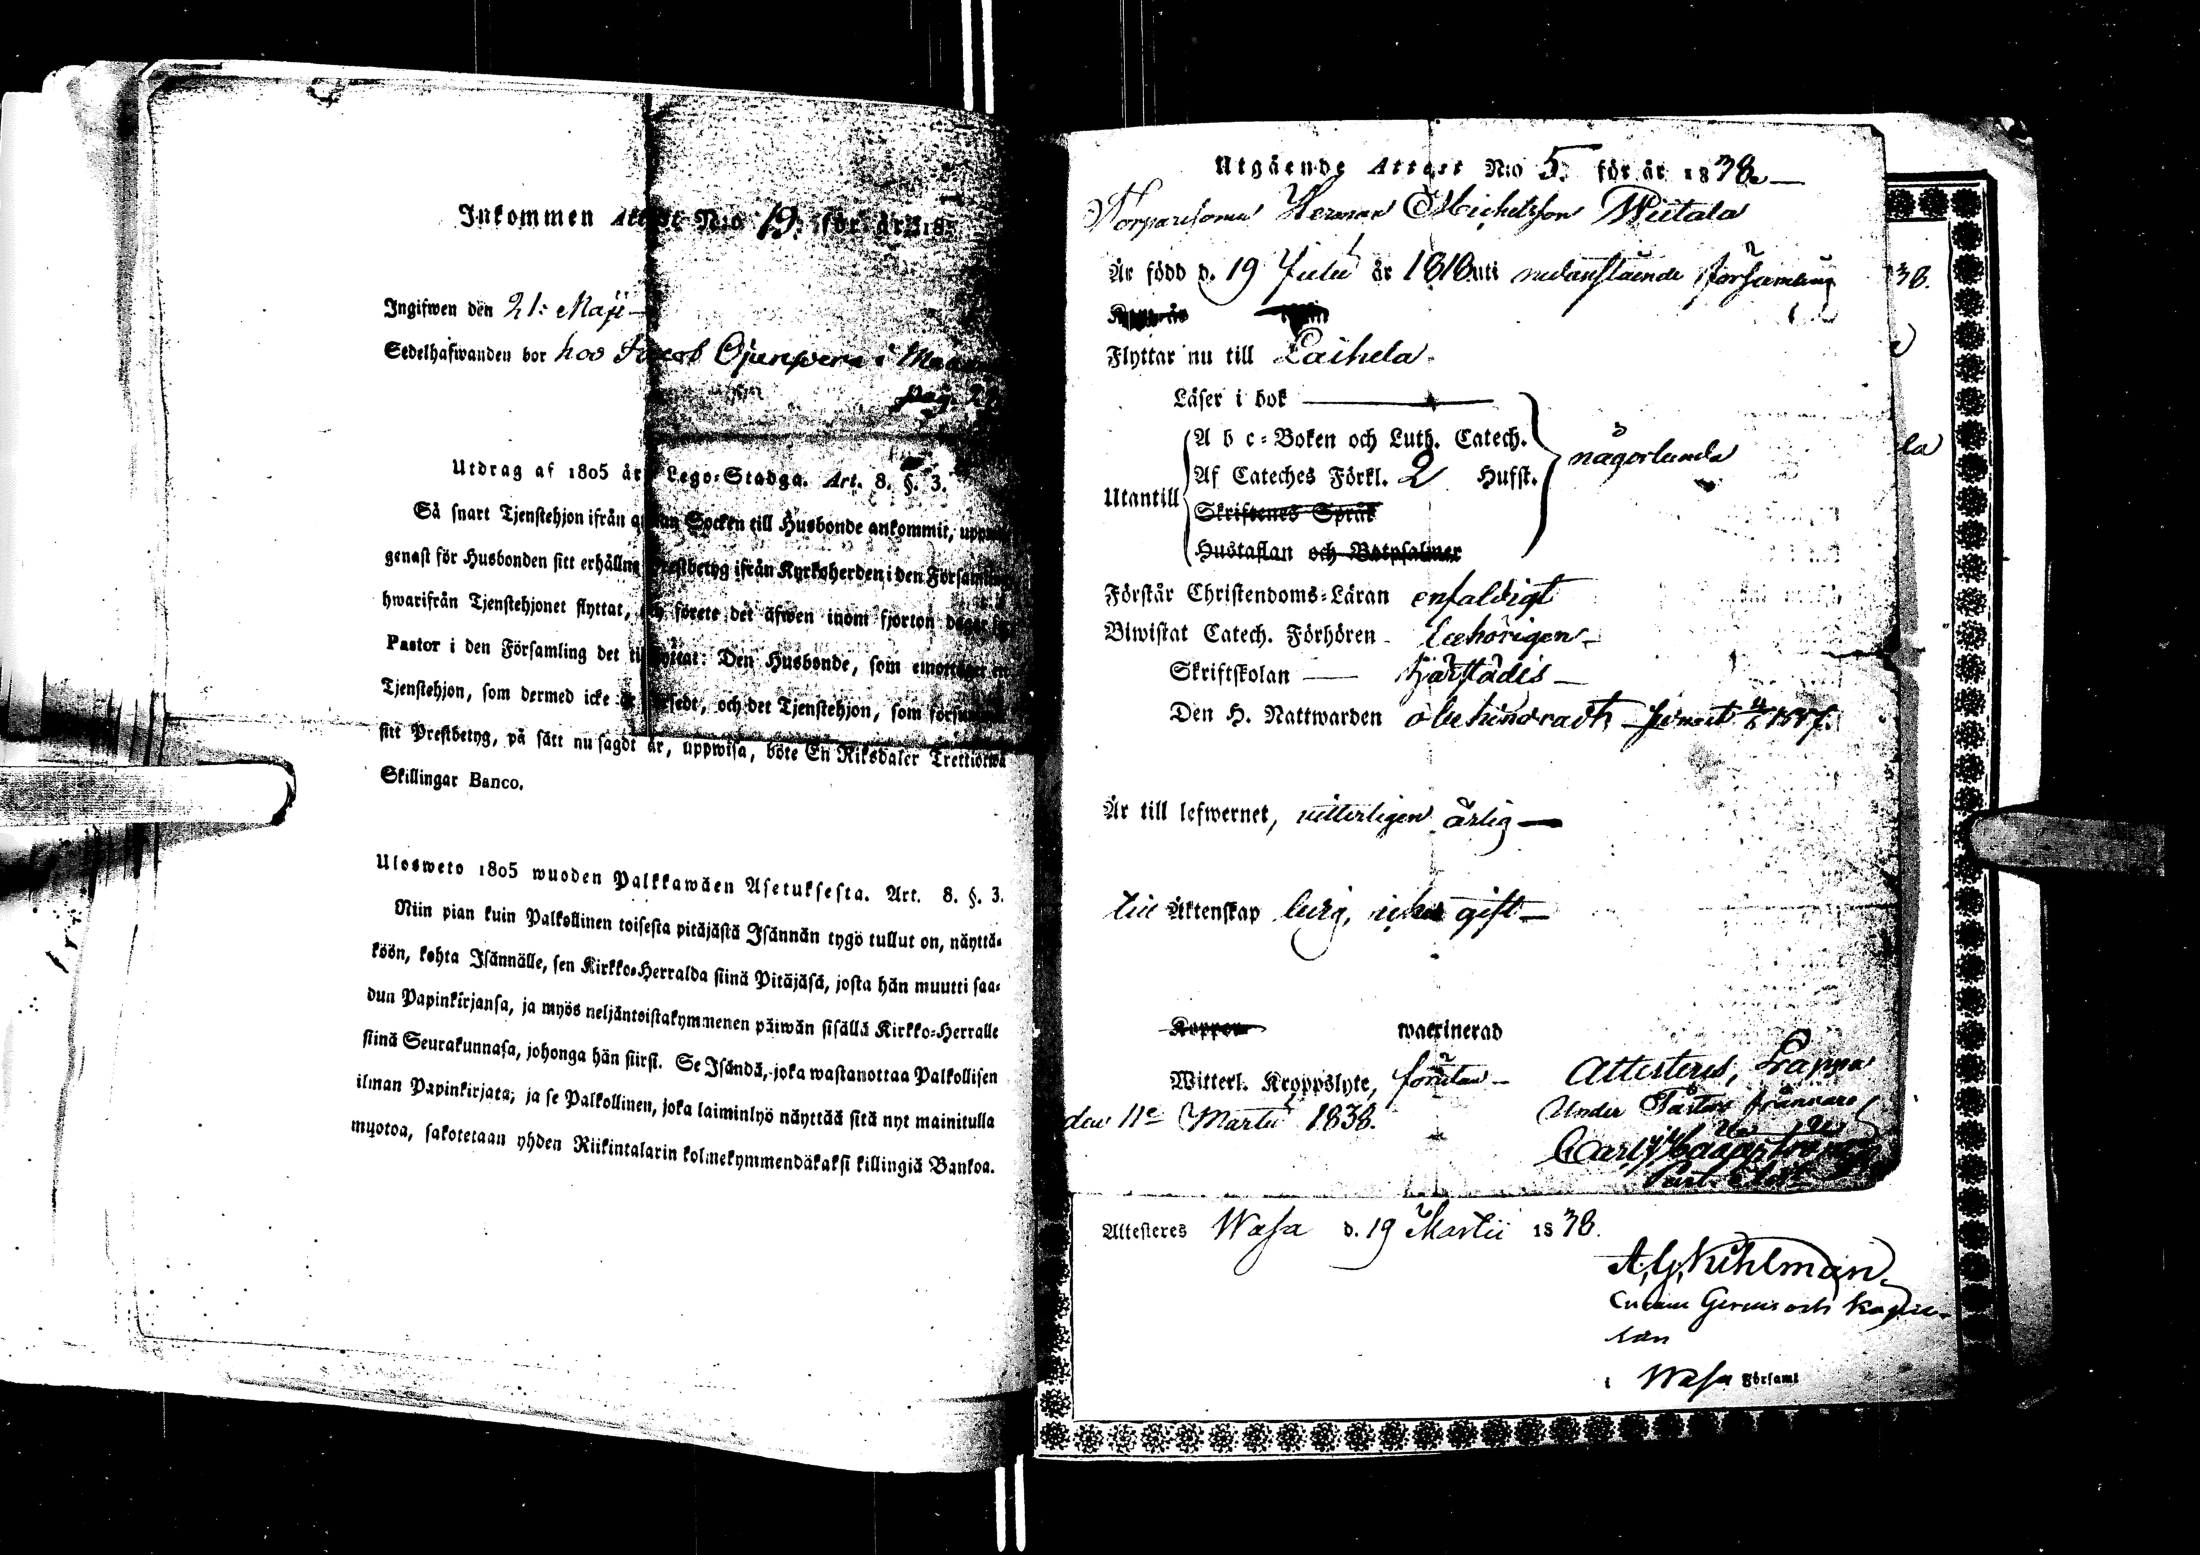 Inkommen Attest N:o 19. för år 18
Ingifwen den 21: Maji
Sedelhafwanden bor hos Jacob i
pag.
Utdrag af 1805 års Lego-Stadga. Art. 8. §. 3.
Så snart Tjenstehjon ifrån annan Socken till Husbonde ankommit,
genast för Husbonden sitt erhållna Prestbetyg ifrån Kyrkoherden i den Församling
hwarifrån Tjenstehjonet flyttat, och förete det äfwen inom fjorton dagar
Pastor i den Församling det tillflyttat: Den Husbonde, som emottager
Tjenstehjon, som dermed icke är försedt, och det Tjenstehjon, som
sitt Prestbetyg, på sätt nu sagdt är, uppwisa, böte En Riksdaler Trettiotwå
Skillingar Banco.
Ulosweto 1805 wuoden Palkkawäen Asetuksesta. Art. 8. §. 3.
Niin pian kuin Palkollinen toisesta pitäjästä Isännän tygö tullut on, näyttä-
köön, kohta Isännälle, sen Kirkko-Herralda siinä Pitäjäsä, josta hän muutti saa-
dun Papinkirjansa, ja myös neljäntoistakymmenen päiwän sisällä Kirkko-Herralle
siinä Seurakunnasa, johonga hän siirsi. Se Isändä, joka wastanottaa Palkollisen
ilman Papinkirjata; ja se Palkollinen, joka laiminlyö näyttää sitä nyt mainitulla
muotoa, sakotetaan yhden Riikintalarin kolmekymmendäkaksi killingiä Bankoa.
Utgående Attest N:o 5. för år 1838
Torparesonen Herman Michelsson Wiitala
Är född d. 19 Julii år 1818 uti nedanstående församling
Flyttar nu till Laihela
Läser i bok
Utantill
A b c-Boken och Luth. Catech.
Af Cateches Förkl. 2 Hufst.
Skriftenes Språk
Hustaflan och Botpsalmer
någorlunda
Förstår Christendoms-Läran enfaldigt
Biwistat Catech. Förhören behörigen
Skriftskolan härstädes
Den H. Nattwarden obehindradt senast
Är till lefwernet, witterligen ärlig
till Äktenskap ledig, gift
Koppor waccinerad
Witterl. Kroppslyte, förutan
Attesteras, Lappo
den 11e Martii 1838.
Under Pastors frånvaro
Carl
Attesteres Wasa d. 19 Martii 1838.
A. G. Kihlman
och
lan
i Wasa Församl
38.
la